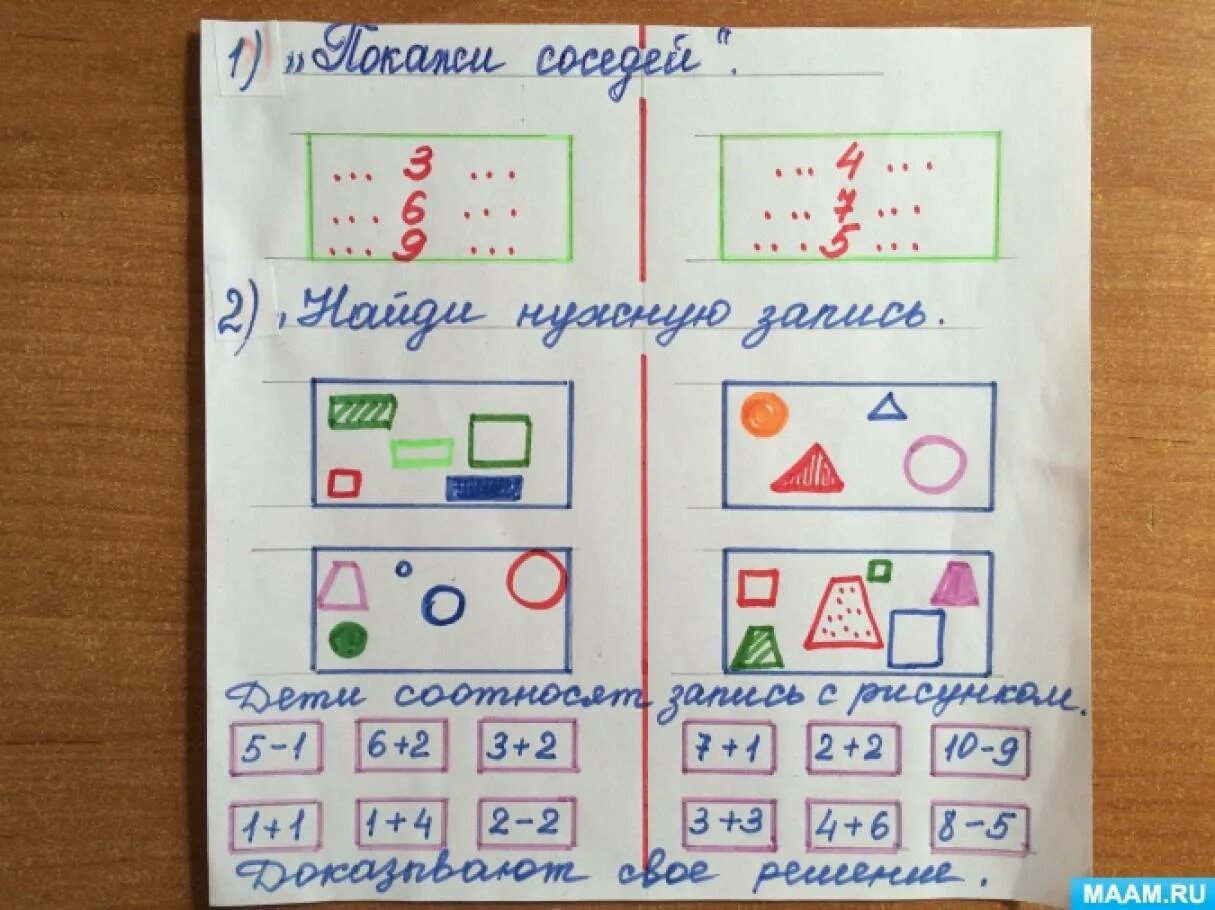 1) „Покажи соседей".
... 3 ... ... 4 ...
... 6 ... ... 7 ...
... 9 ... ... 5 ...
2) Найди нужную запись.
Дети соотносят запись с рисунком.
5-1 6+2 3+2 7+1 2+2 10-9
1+1 1+4 2-2 3+3 4+6 8-5
Доказывают свое решение.
MAAM.RU